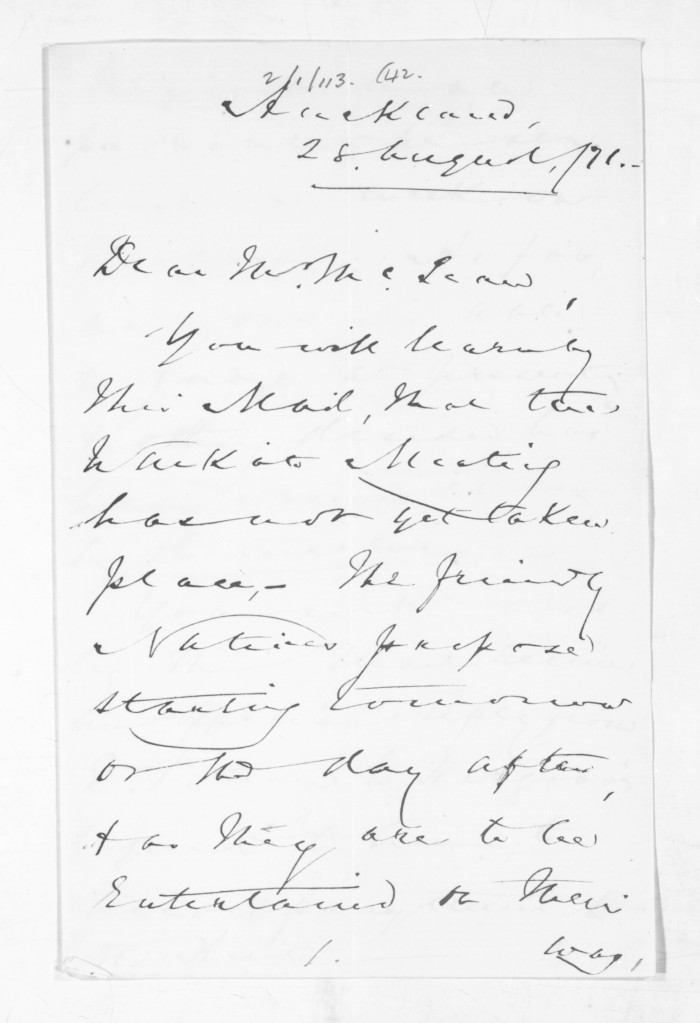 2/1/113. (42.
Auckland,
28. August, /71.-
Dear Mr. McLean,
You will learn by
this Mail, that the
Waikato Meeting
has not yet taken
place,- The friendly
Natives propose
starting tomorrow
or the day after,
& as they are to be
Entertained on their
1.
way,